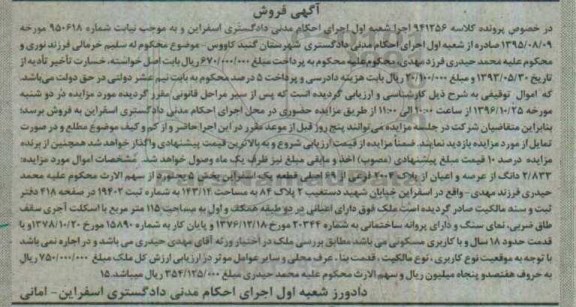 آگهی فروش
در خصوص پرونده کلاسه ۹۴۱۳۵۶ اجرا شعبه اول اجرای احکام مدنی دادگستری اسفراین و به موجب نیابت شماره ۹۵۰۶۱۸ مورخه
۱۳۹۵/۰۸/۰۹ صادره از شعبه اول اجرای احکام مدنی دادگستری شهرستان گنبد کاووس - موضوع محکوم له سلیم خرمالی فرزند نوری و
محکوم علیه محمد حیدری فرزند مهدی، محکوم علیه محکوم به پرداخت مبلغ ۶۷۰/۰۰۰/۰۰۰ ریال بابت اصل خواسته، خسارت تأخیر تأدیه از
تاریخ ۱۳۹۳/۰۵/۳۰ و مبلغ ۲۰/۱۰۰/۰۰۰ ریال بابت هزینه دادرسی و پرداخت ۵ درصد محکوم به بابت نیم عشر دولتی در حق دولت می‌باشد.
که اموال توقیفی به شرح ذیل کارشناسی و ارزیابی گردیده است که پس از سیر مراحل قانونی مقرر گردیده مورد مزایده در دو شنبه
مورخه ۱۳۹۶/۱۰/۲۵ از ساعت ۱۰:۰۰ الی ۱۱:۰۰ از طریق مزایده حضوری در محل اجرای احکام مدنی دادگستری اسفراین به فروش برسد؛
بنابراین متقاضیان شرکت در جلسه مزایده می‌توانند پنج روز قبل از موعد مقرر در این اجرا حاضر و از کم و کیف موضوع مطلع و در صورت
تمایل از مورد مزایده بازدید نمایند. ضمناً مزایده از قیمت ارزیابی شروع و به بالاترین قیمت پیشنهادی واگذار خواهد شد همچنین از برنده
مزایده درصد ۱۰ قیمت مبلغ پیشنهادی (مصوب) اخذ و مابقی مبلغ نیز ظرف یک ماه وصول خواهد شد. مشخصات اموال مورد مزایده:
۲/۸۳۳ دانگ از عرصه و اعیان از پلاک ۲۰۰۲ فرعی از ۶۹ اصلی قطعه یک اسفراین بخش ۵ بجنورد از سهم الارث محکوم علیه محمد
حیدری فرزند مهدی - واقع در اسفراین خیابان شهید دستغیب ۲ پلاک ۸۴ به مساحت ۱۴۳/۱۲ به شماره ثبت ۱۹۴۰۲ در صفحه ۴۱۸ دفتر
ثبت و سند مالکیت صادر گردیده است ملک فوق دارای اعیانی در دو طبقه همکف و اول به مساحت ۱۱۵ متر مربع با اسکلت آجری سقف
طاق ضربی، نمای سنگ و دارای پروانه ساختمانی به شماره ۲۰۳۴۴ مورخ ۱۳۷۶/۱۲/۱۸ و پایان کار به شماره ۱۵۸۹۰ مورخ ۱۳۷۸/۱۰/۲۰ و یا
قدمت حدود ۱۸ سال و با کاربری مسکونی می باشد مطابق بررسی ملک در اختیار ورثه آقای مهدی حیدری می باشد و در اجاره نمی باشد
با توجه به موقعیت نوع کاربری، نوع مالکیت، قدمت بنا، عرف محلی و سایر عوامل موثر در ارزیابی ارزش کل ملک مبلغ ۷۵۰/۰۰۰/۰۰۰ ریال
به حروف هفتصدو پنجاه میلیون ریال و سهم الارث محکوم علیه محمد حیدری مبلغ ۳۵۴/۱۲۵/۰۰۰ ریال میباشد. ۱۵
دادورز شعبه اول اجرای احکام مدنی دادگستری اسفراین - امانی